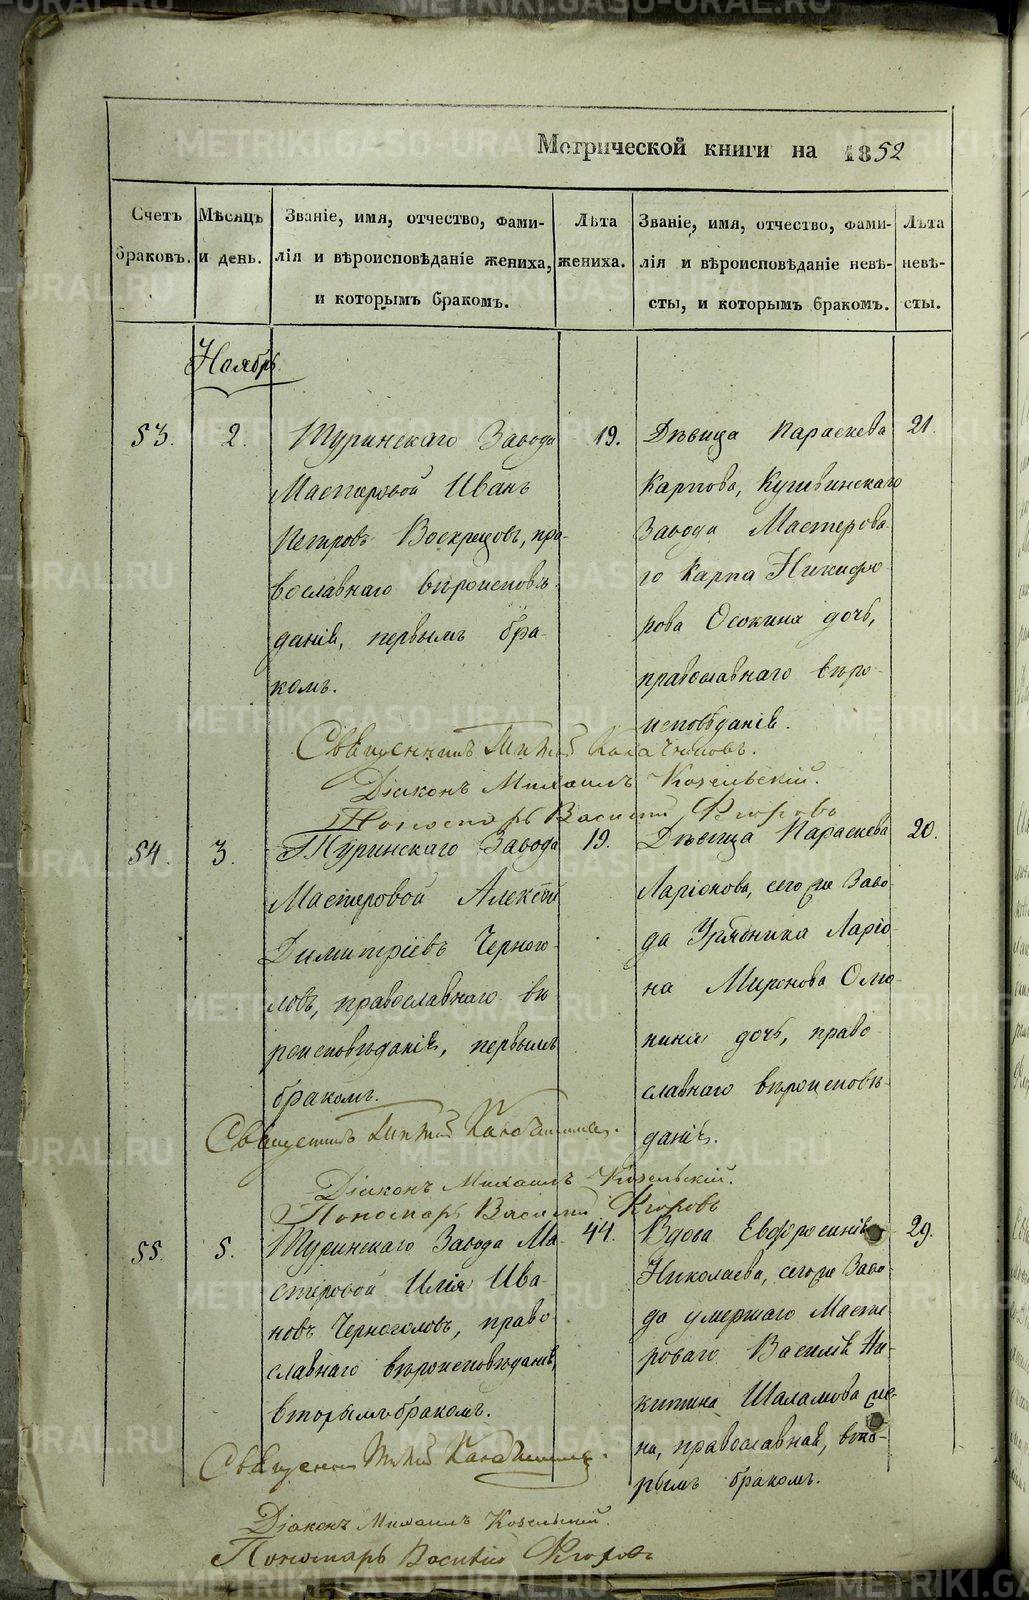 Метрической книги на 1852
Счетъ браковъ.
Мѣсяцъ и день.
Званіе, имя, отчество, фами-
лія и вѣроисповѣданіе жениха,
и которымъ бракомъ.
Лѣта жениха.
Званіе, имя, отчество, фами-
лія и вѣроисповѣданіе невѣ-
сты, и которымъ бракомъ.
Лѣта невѣ-
сты.
Ноябрь
53.
2.
Туринскаго Завода
Мастеровой Иванъ
Петровъ Воскрецовъ, пра-
вославнаго вѣроисповѣ-
данія, первымъ бра-
комъ.
19.
Дѣвица Параскева
Карпова, Кушвинскаго
Завода Мастерова-
го Карпа Никифо-
рова Осокина дочь,
православнаго вѣро-
исповѣданія.
21.
Священникъ
Діаконъ Михаилъ Козельскій.
Пономарь Василій Флоровъ
54.
3.
Туринскаго Завода
Мастеровой Алексѣй
Димитріевъ Черного-
ловъ, православнаго вѣ
роисповѣданія, первымъ
бракомъ.
19.
Дѣвица Параскева
Ларіонова, сего же Заво-
да Урядника Ларіо-
на Миронова
дочь, право
славнаго вѣроисповѣ-
данія.
20.
Священникъ
Діаконъ Михаилъ Козельскій.
Пономарь Василій Флоровъ
55.
5.
Туринскаго Завода Ма-
стеровой Илія Ива-
новъ Черноголовъ, право
славнаго вѣроисповѣданія,
вторымъ бракомъ.
44.
Вдова Евфросинія
Николаева, сего же Заво-
да умершаго Масте
роваго Василія Ни-
китина Шаламова же-
на, православная, вто-
рымъ бракомъ.
29.
Священникъ
Діаконъ Михаилъ Козельскій.
Пономарь Василій Флоровъ
METRIKI.GASO-URAL.RU